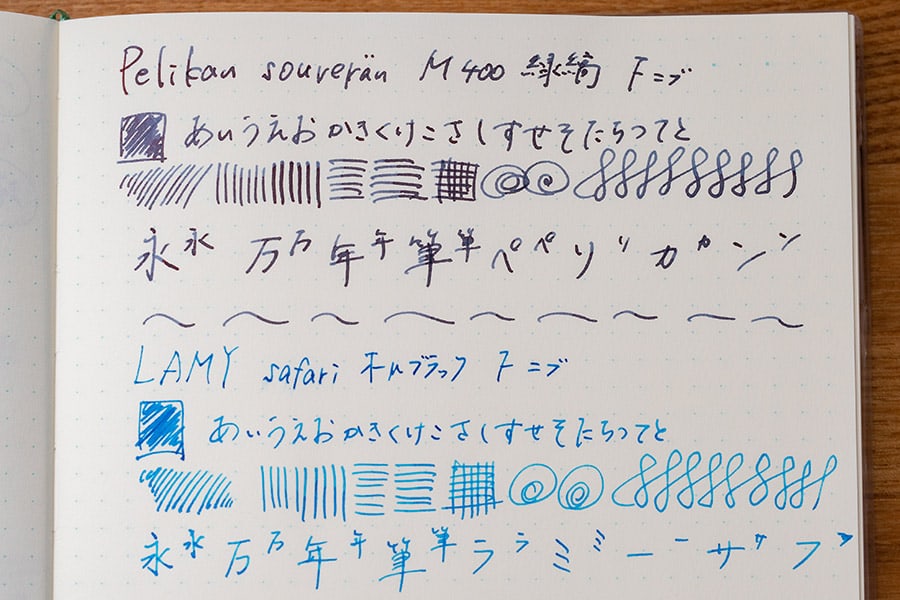 Pelikan souverän M400 緑縞 Fニブ
あいうえおかきくけこさしすせそたちつてと
永永 万万 年年 筆筆 ペペ リリ カカ ンン
LAMY safari オールブラック Fニブ
あいうえおかきくけこさしすせそたちつてと
永永 万万 年年 筆筆 ララ ミミ ーー ササ フ